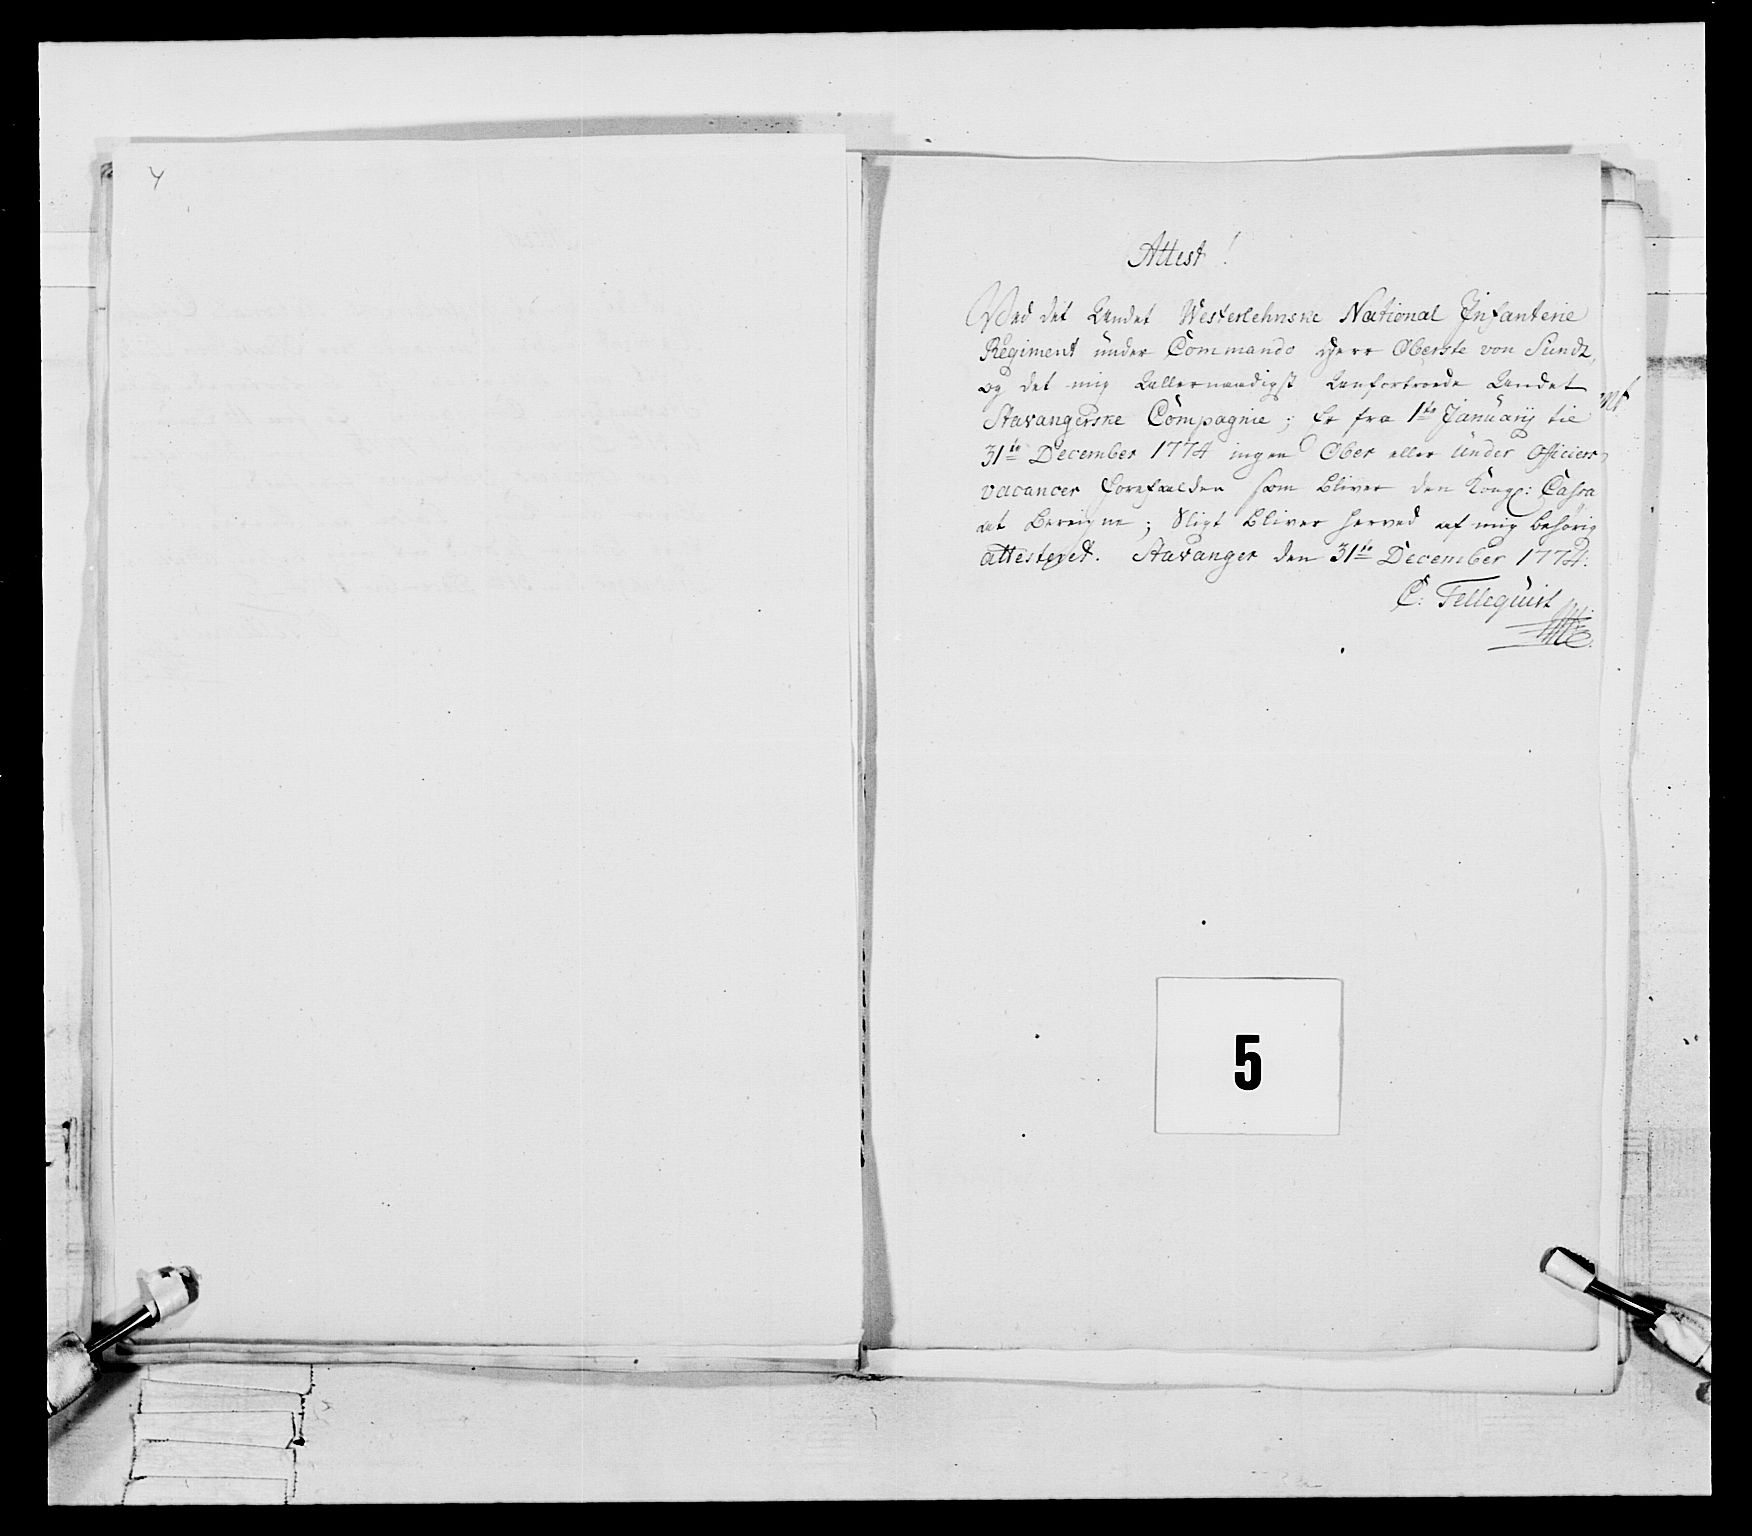 4
Attest!
Ved det Andet Westerlehnske National Infanterie
Regiment under Commando Herr Oberste von Sundt,
og det mig allernaadigst anfortroede Andet
Stavangerske Compagnie; er fra 1te Januarij til
31te December 1774 ingen Ober eller Under Officiers
vacancer forefalden som bliver den Kongl: Cassa
at bereigne; Sligt bliver herved af mig behörig
attesteret. Stavanger den 31te December 1774.
C: Fellequist
5